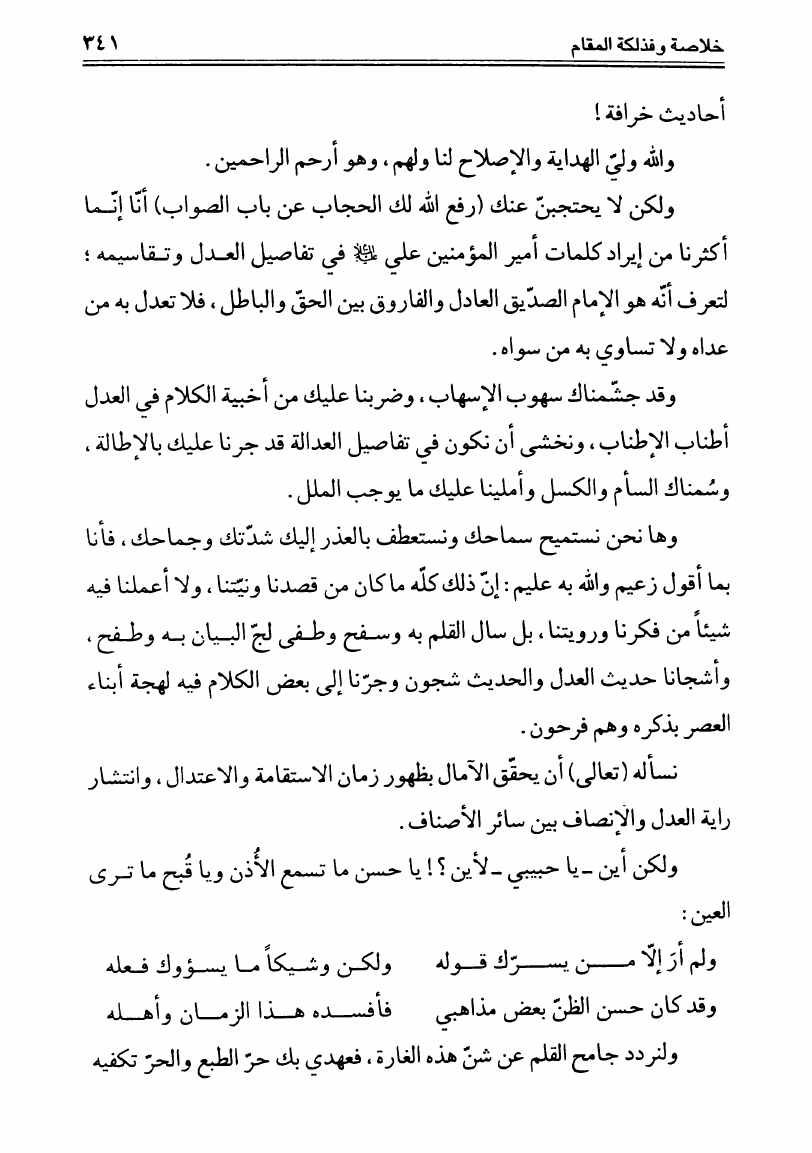 خلاصة وفذلكة المقام ٣٤١
أحاديث خرافة !
والله وليّ الهداية والإصلاح لنا ولهم ، وهو أرحم الراحمين .
ولكن لا يحتجبنّ عنك (رفع الله لك الحجاب عن باب الصواب) أنّا إنّـما
أكثرنا من إيراد كلمات أمير المؤمنين علي عليه السلام في تفاصيل العـدل وتـقاسيمه ؛
لتعرف أنّه هو الإمام الصدّيق العادل والفاروق بين الحقّ والباطل ، فلا تعدل به من
عداه ولا تساوي به من سواه .
وقد جشّمناك سهوب الإسهاب ، وضربنا عليك من أخبية الكلام في العدل
أطناب الإطناب ، ونخشى أن نكون في تفاصيل العدالة قد جرنا عليك بالإطالة ،
وسُمناك السأم والكسل وأملينا عليك ما يوجب الملل .
وها نحن نستميح سماحك ونستعطف بالعذر إليك شدّتك وجماحك ، فأنا
بما أقول زعيم والله به عليم : إنّ ذلك كلّه ما كان من قصدنا ونيّتنا ، ولا أعملنا فيه
شيئاً من فكرنا ورويتنا ، بل سال القلم به وسـفح وطـفى لجّ البـيان بـه وطـفح ،
وأشجانا حديث العدل والحديث شجون وجرّنا إلى بعض الكلام فيه لهجة أبناء
العصر بذكره وهم فرحون .
نسأله (تعالى) أن يحقّق الآمال بظهور زمان الاستقامة والاعتدال ، وانتشار
راية العدل والإنصاف بين سائر الأصناف .
ولكن أين ـ يا حبيبي ـ لأين ؟ ! يا حسن ما تسمع الأُذن ويا قُبح ما تـرى
العين :
ولم أرَ إلّا مـــن يســـرّك قـــوله ولكـن وشـيكاً مـا يسـؤوك فـعله
وقد كان حسن الظنّ بعض مذاهبي فأفســـده هـــذا الزمـــان وأهـــله
ولنردد جامح القلم عن شنّ هذه الغارة ، فعهدي بك حرّ الطبع والحرّ تكفيه